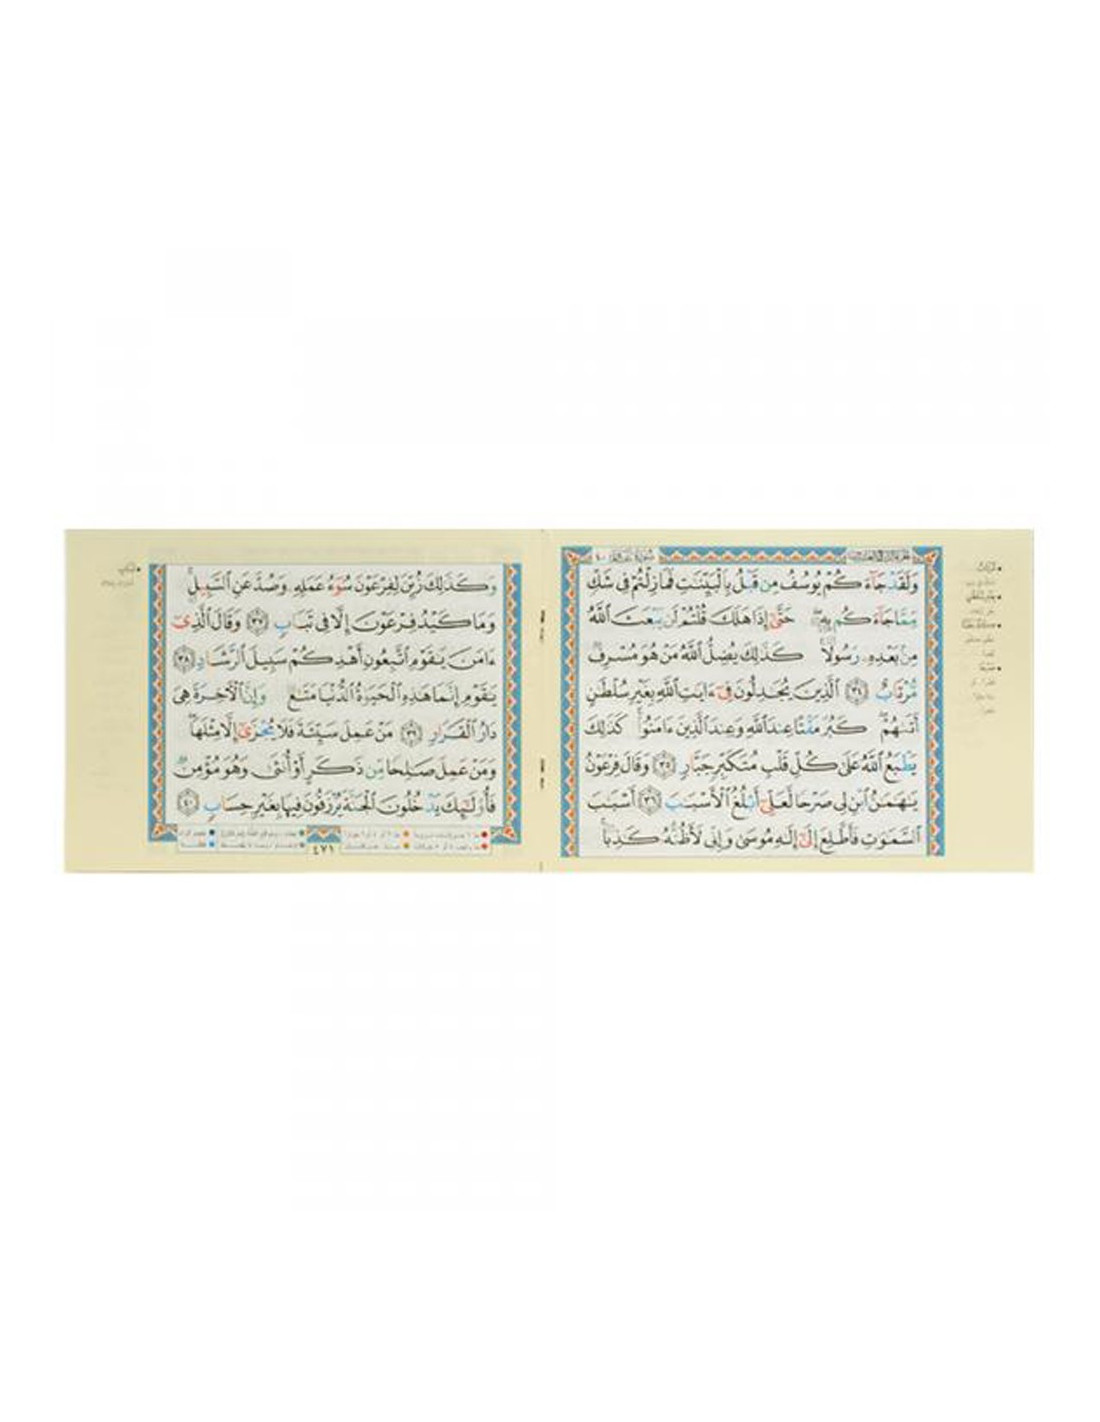 سورة غافر ٤٠
وَلَقَدْ جَآءَكُمْ يُوسُفُ مِن قَبْلُ بِٱلْبَيِّنَٰتِ فَمَا زِلْتُمْ فِى شَكٍّ
مِّمَّا جَآءَكُم بِهِۦ حَتَّىٰٓ إِذَا هَلَكَ قُلْتُمْ لَن يَبْعَثَ ٱللَّهُ
مِنۢ بَعْدِهِۦ رَسُولًا كَذَٰلِكَ يُضِلُّ ٱللَّهُ مَنْ هُوَ مُسْرِفٌ
مُّرْتَابٌ ﴿٣٤﴾ ٱلَّذِينَ يُجَٰدِلُونَ فِىٓ ءَايَٰتِ ٱللَّهِ بِغَيْرِ سُلْطَٰنٍ
أَتَىٰهُمْ كَبُرَ مَقْتًا عِندَ ٱللَّهِ وَعِندَ ٱلَّذِينَ ءَامَنُوا۟ كَذَٰلِكَ
يَطْبَعُ ٱللَّهُ عَلَىٰ كُلِّ قَلْبِ مُتَكَبِّرٍ جَبَّارٍ ﴿٣٥﴾ وَقَالَ فِرْعَوْنُ
يَٰهَٰمَٰنُ ٱبْنِ لِى صَرْحًا لَّعَلِّىٓ أَبْلُغُ ٱلْأَسْبَٰبَ ﴿٣٦﴾ أَسْبَٰبَ
ٱلسَّمَٰوَٰتِ فَأَطَّلِعَ إِلَىٰٓ إِلَٰهِ مُوسَىٰ وَإِنِّى لَأَظُنُّهُۥ كَٰذِبًا
وَكَذَٰلِكَ زُيِّنَ لِفِرْعَوْنَ سُوٓءُ عَمَلِهِۦ وَصُدَّ عَنِ ٱلسَّبِيلِ
وَمَا كَيْدُ فِرْعَوْنَ إِلَّا فِى تَبَابٍ ﴿٣٧﴾ وَقَالَ ٱلَّذِىٓ
ءَامَنَ يَٰقَوْمِ ٱتَّبِعُونِ أَهْدِكُمْ سَبِيلَ ٱلرَّشَادِ ﴿٣٨﴾
يَٰقَوْمِ إِنَّمَا هَٰذِهِ ٱلْحَيَوٰةُ ٱلدُّنْيَا مَتَٰعٌ وَإِنَّ ٱلْءَاخِرَةَ هِىَ
دَارُ ٱلْقَرَارِ ﴿٣٩﴾ مَنْ عَمِلَ سَيِّئَةً فَلَا يُجْزَىٰٓ إِلَّا مِثْلَهَا
وَمَنْ عَمِلَ صَٰلِحًا مِّن ذَكَرٍ أَوْ أُنثَىٰ وَهُوَ مُؤْمِنٌ
فَأُو۟لَٰٓئِكَ يَدْخُلُونَ ٱلْجَنَّةَ يُرْزَقُونَ فِيهَا بِغَيْرِ حِسَابٍ ﴿٤٠﴾
٤٧١